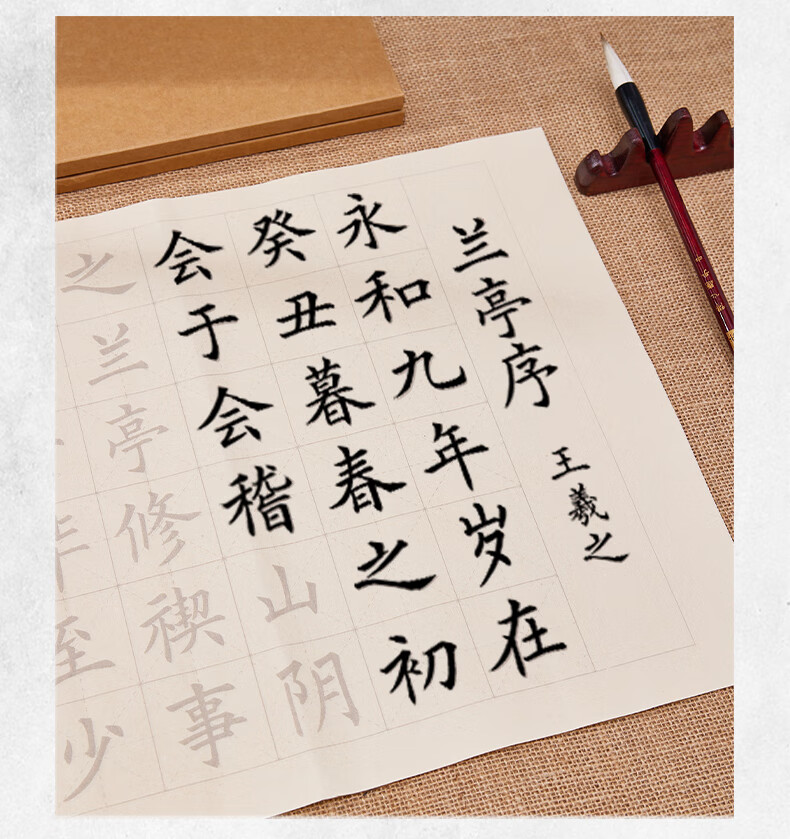 兰亭序
王羲之
永和九年岁在
癸丑暮春之初
会于会稽山阴
之兰亭修禊事
至少